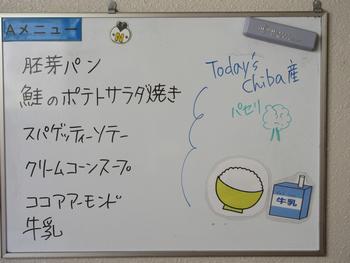 Aメニュー
胚芽パン
鮭のポテトサラダ焼き
スパゲッティーソテー
クリームコーンスープ
ココアアーモンド
牛乳
Today's
Chiba産
パセリ
牛乳